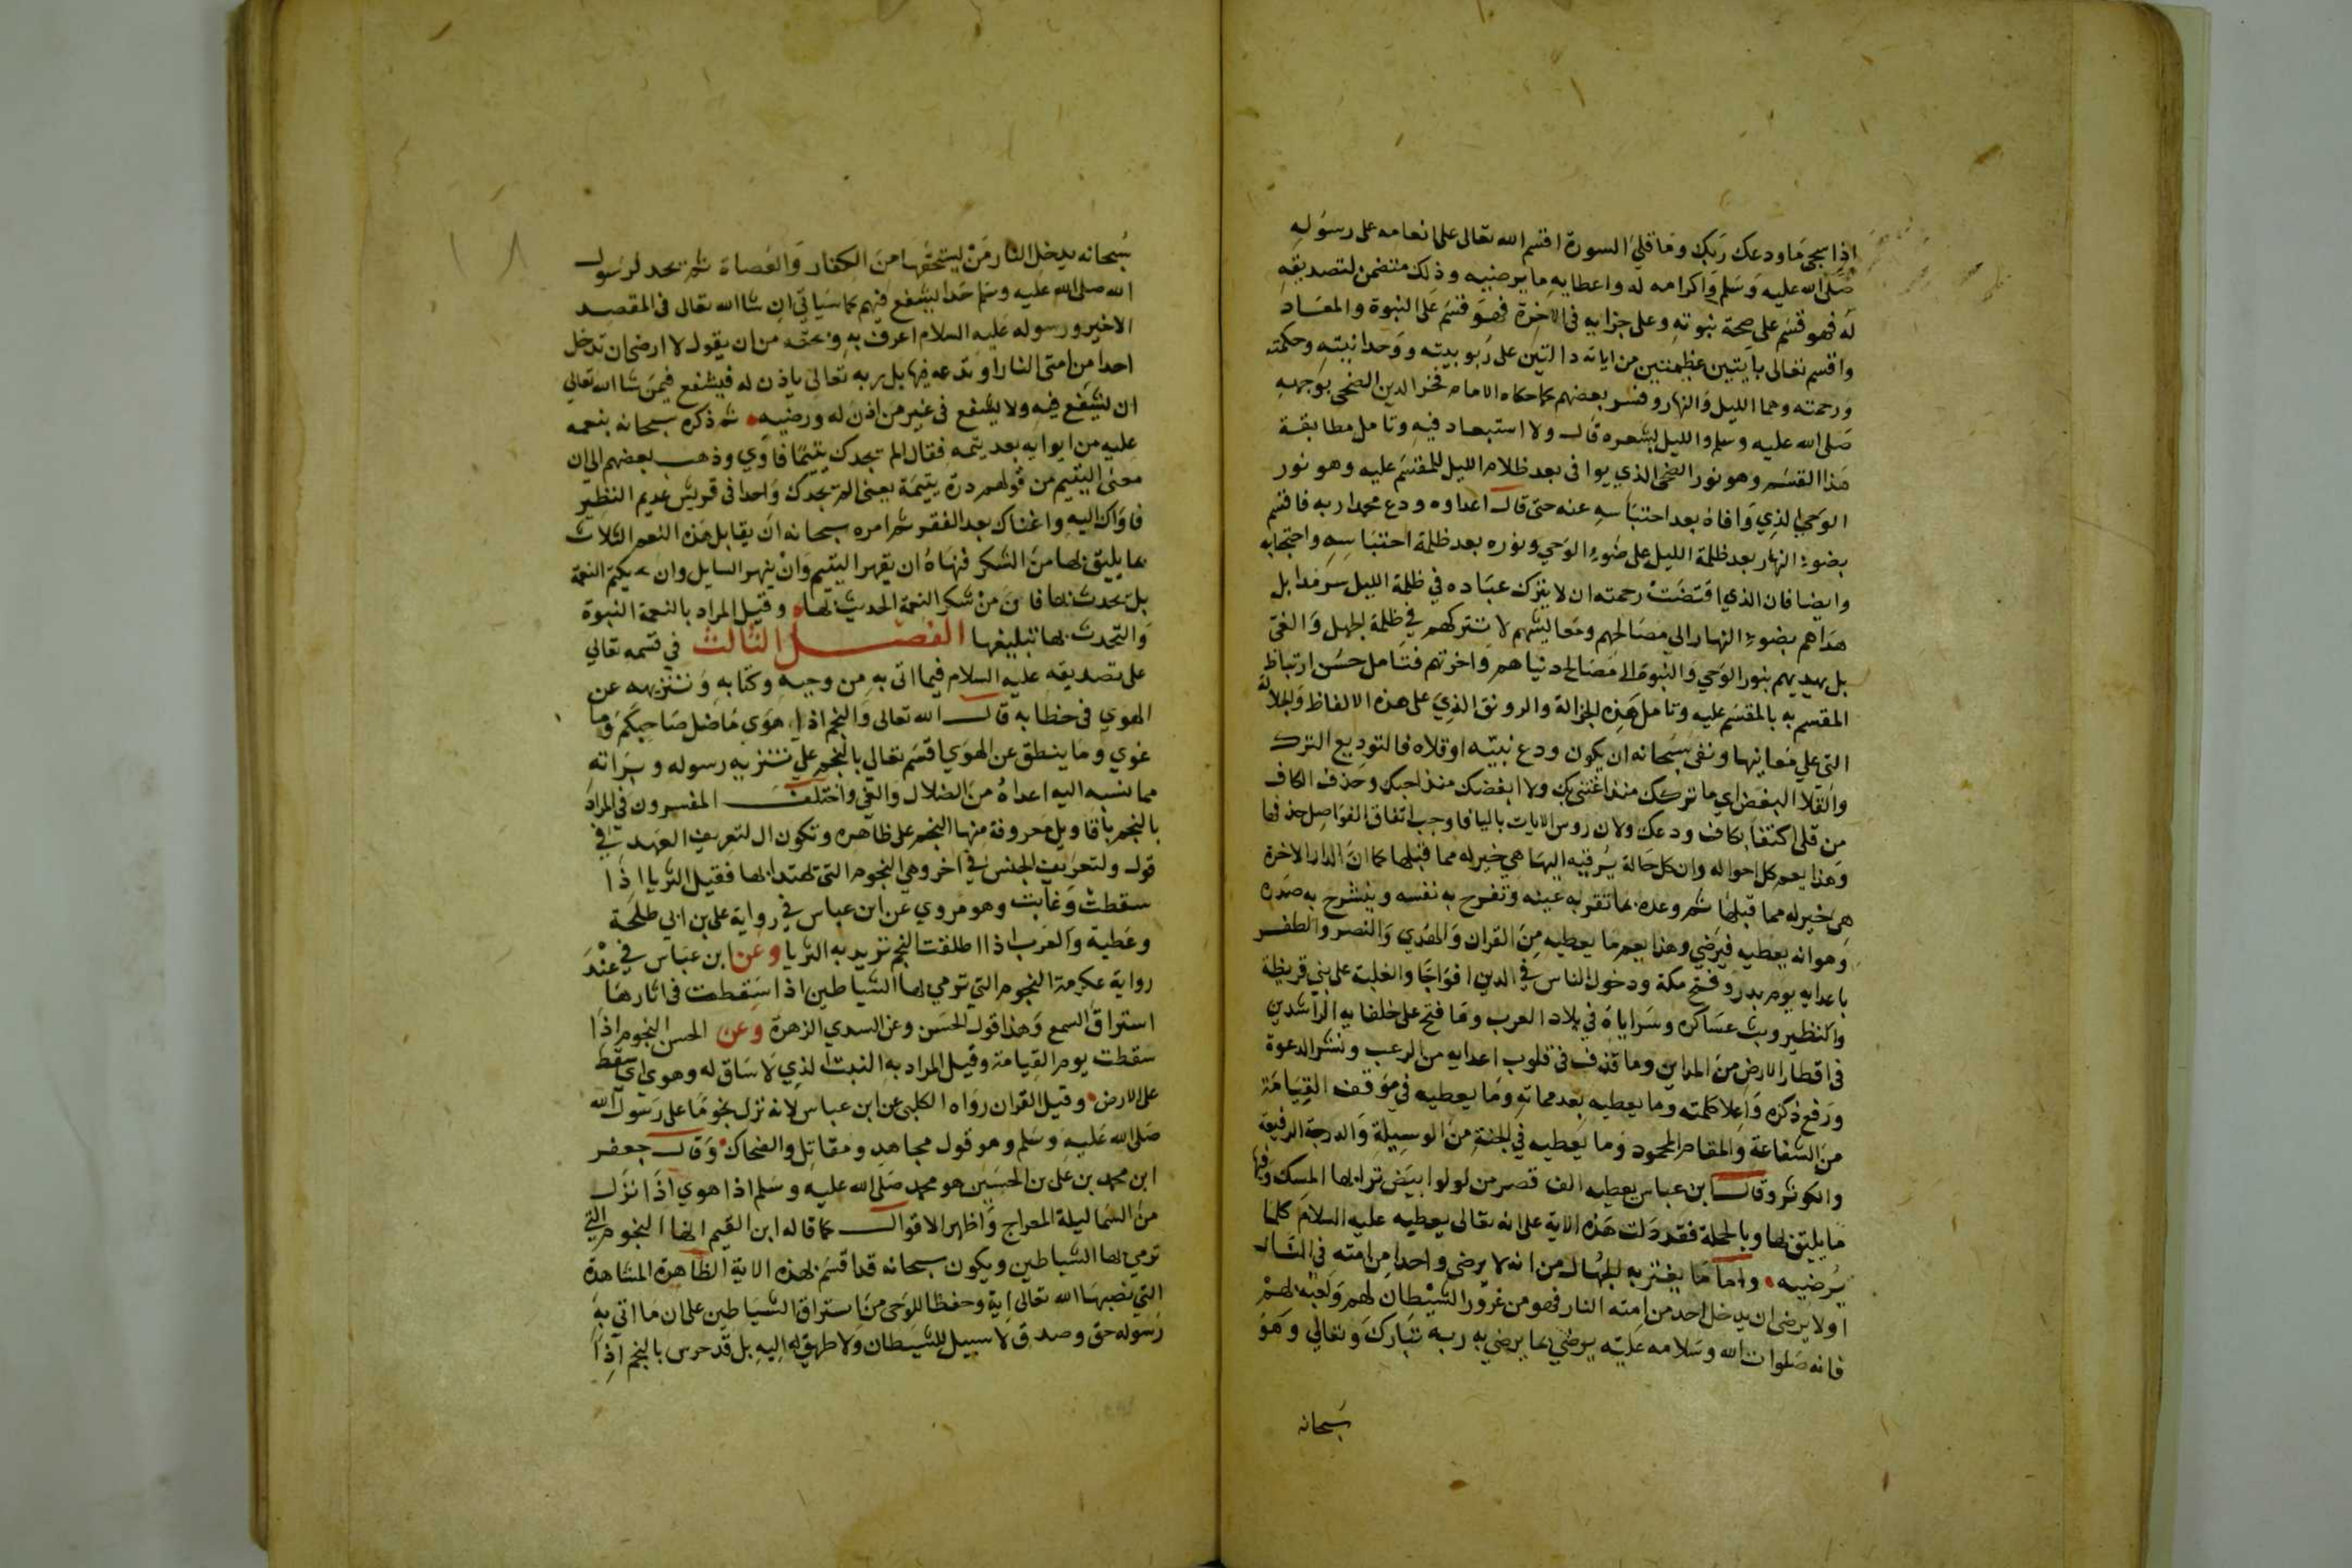 اذا سجى ما ودعك ربك وما قلى السورة اقسم الله تعالى على انعامه على رسوله
صلى الله عليه وسلم واكرامه له واعطايه ما يرضيه وذلك متضمن لتصديقه
له فهو قسم على صحة نبوته وعلى جزايه فى الاخرة فهو قسم على النبوة والمعاد
واقسم تعالى بايتين عظيمتين من اياته دالتين على ربوبيته ووحدانيته وحكمته
ورحمته وهما الليل والنهار وفسر بعضهم كما حكاه الامام فخر الدين الضحى بوجهه
صلى الله عليه وسلم والليل بشعره قال ولا استبعاد فيه وتامل مطابقة
هذا القسم وهو نور الضحى الذي يوافى بعد ظلام الليل للمقسم عليه وهو نور
الوحي الذي وافاه بعد احتباسه عنه حتى قال اعداوه ودع محمدا ربه فاقسم
بضوء النهار بعد ظلمة الليل على ضوء الوحي ونوره بعد ظلمة احتباسه واحتجابه
وايضا فان الذي اقتضت رحمته ان لا يترك عباده في ظلمة الليل سرمدا بل
هداهم بضوء النهار الى مصالحهم ومعايشهم لا يتركهم في ظلمة الجهل والغي
بل يهديهم بنور الوحي والنبوة الى مصالح دنياهم واخرتهم فتامل حسن ارتباط
المقسم به بالمقسم عليه وتامل هذه الجزالة والرونق الذي على هذه الالفاظ والجلالة
التي على معانيها ونفى سبحانه ان يكون ودع نبيه او قلاه فالتوديع الترك
والقلا البغض اي ما تركك منذ اعتنى بك ولا ابغضك منذ احبك وحذف الكاف
من قلى اكتفا بكاف ودعك ولان روس الايات باليا فاوجب اتفاق الفواصل حذفها
وهذا يعم كل احواله وان كل حالة يرقيه اليها هي خير له مما قبلها كما ان الدار الاخرة
هي خير له مما قبلها ثم وعده بما تقر به عينه وتفرح به نفسه وينشرح به صدره
وهو انه يعطيه فيرضي وهذا يعم ما يعطيه من القران والهدي والنصر والظفر
باعدايه يوم بدر وفتح مكة ودخول الناس في الدين افواجا والغلبة على بني قريظة
والنظير وبث عساكره وسراياه في بلاد العرب وما فتح على خلفايه الراشدين
في اقطار الارض من المداين وما قذف في قلوب اعدايه من الرعب ونشر الدعوة
ورفع ذكره واعلا كلمته وما يعطيه بعد مماته وما يعطيه في موقف القيامة
من الشفاعة والمقام المحمود وما يعطيه في الجنة من الوسيلة والدرجة الرفيعة
والكوثر وقال ابن عباس يعطيه الف قصر من لولو ابيض ترابها المسك وفيها
ما يليق بها وبالجملة فقد دلت هذه الاية على انه تعالى يعطيه عليه السلام كلما
يرضيه واما ما يغتر به الجهال من انه لا يرضى واحدا من امته في النار
او لا يرضى ان يدخل احد من امته النار فهو من غرور الشيطان لهم ولعبه بهم
فانه صلوات الله وسلامه عليه يرضي بما يرضي به ربه تبارك وتعالي وهو
سبحانه
سبحانه يدخل النار من يستحقها من الكفار والعصاة ثم يحد لرسول
الله صلى الله عليه وسلم حدا يشفع فيهم كما سياتي ان شا الله تعالى في المقصد
الاخير ورسوله عليه السلام اعرف به وبحقه من ان يقول لا ارضى ان تدخل
احدا من امتى النار او تدعه فيها بل ربه تعالى ياذن له فيشفع فيمن شا الله تعالى
ان يشفع فيه ولا يشفع في غير من اذن له ورضيه ثم ذكره سبحانه بنعمه
عليه من ايوايه بعد يتمه فقال الم يجدك يتيما فاوي وذهب بعضهم الى ان
معنى اليتيم من قولهم درة يتيمة بمعنى الم يجدك واحدا في قريش عديم النظير
فاواك اليه واغناك بعد الفقر ثم امره سبحانه ان يقابل هذه النعم الثلاث
بما يليق بها من الشكر فنهاه ان يقهر اليتيم وان ينهر السايل وان يكتم النعمة
بل يحدث بها فان من شكر النعمة الحديث بها وقيل المراد بالنعمة النبوة
والتحدث بها تبليغها الفصل الثالث في قسمه تعالي
على تصديقه عليه السلام فيما اتى به من وحيه وكتابه وتنزيهه عن
الهوي في خطابه قال الله تعالى والنجم اذا هوى ما ضل صاحبكم وما
غوي وما ينطق عن الهوي اقسم تعالي بالنجم على تنزيه رسوله وبراته
مما نسبه اليه اعداه من الضلال والغي واختلف المفسرون في المراد
بالنجم باقاويل معروفة منها النجم على ظاهره وتكون ال لتعريف العهد في
قول ولتعريف الجنس في اخر وهي النجوم التي يهتدا بها فقيل الثريا اذا
سقطت وغابت وهو مروي عن ابن عباس في رواية على بن ابي طلحة
وعطية والعرب اذا اطلقت النجم تريد به الثريا وعن ابن عباس في عند
رواية عكرمة النجوم التي ترمي بها الشياطين اذا سقطت في اثارها
استراق السمع وهذا قول الحسن وعن السدي الزهرة وعن الحسن النجوم اذا
سقطت يوم القيامة وقيل المراد به النبت الذي لا ساق له وهوي اي سقط
على الارض وقيل القران رواه الكلبي عن ابن عباس لانه نزل نجوما على رسول الله
صلى الله عليه وسلم وهو قول مجاهد ومقاتل والضحاك وقال جعفر
ابن محمد بن على بن الحسين هو محمد صلى الله عليه وسلم اذا هوي اذا نزل
من السما ليلة المعراج واظهر الاقوال كما قاله ابن القيم انها النجوم التي
ترمي بها الشياطين ويكون سبحانه قد اقسم بهذه الاية الظاهرة المشاهدة
التي نصبها الله تعالى اية وحفظا للوحى من استراق الشياطين على ان ما اتى به
رسوله حق وصدق لا سبيل للشيطان ولا طريق له اليه بل قد حرس بالنجم اذا